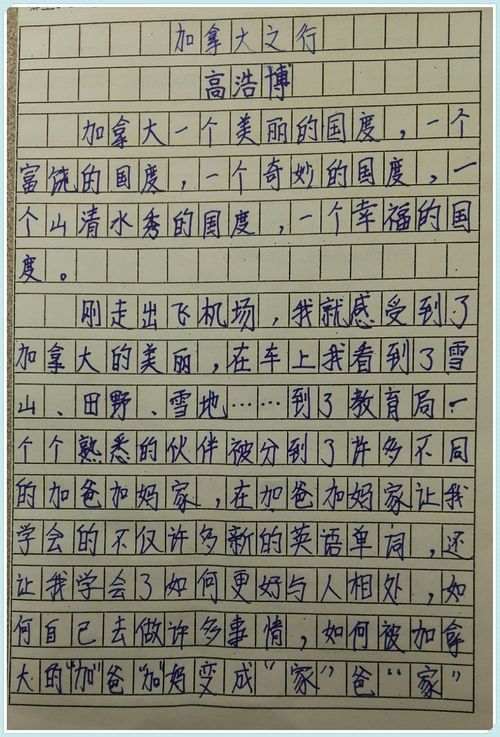 加拿大之行
高浩博
加拿大一个美丽的国度，一个
富饶的国度，一个奇妙的国度，一
个山清水秀的国度，一个幸福的国
度。
刚走出飞机场，我就感受到了
加拿大的美丽，在车上我看到了雪
山、田野、雪地……到了教育局一
个个熟悉的伙伴被分到了许多不同
的加爸加妈家，在加爸加妈家让我
学会的不仅许多新的英语单词，还
让我学会了如何更好与人相处，如
何自己去做许多事情，如何被加拿
大的“加”爸“加”妈变成“家”爸“家”